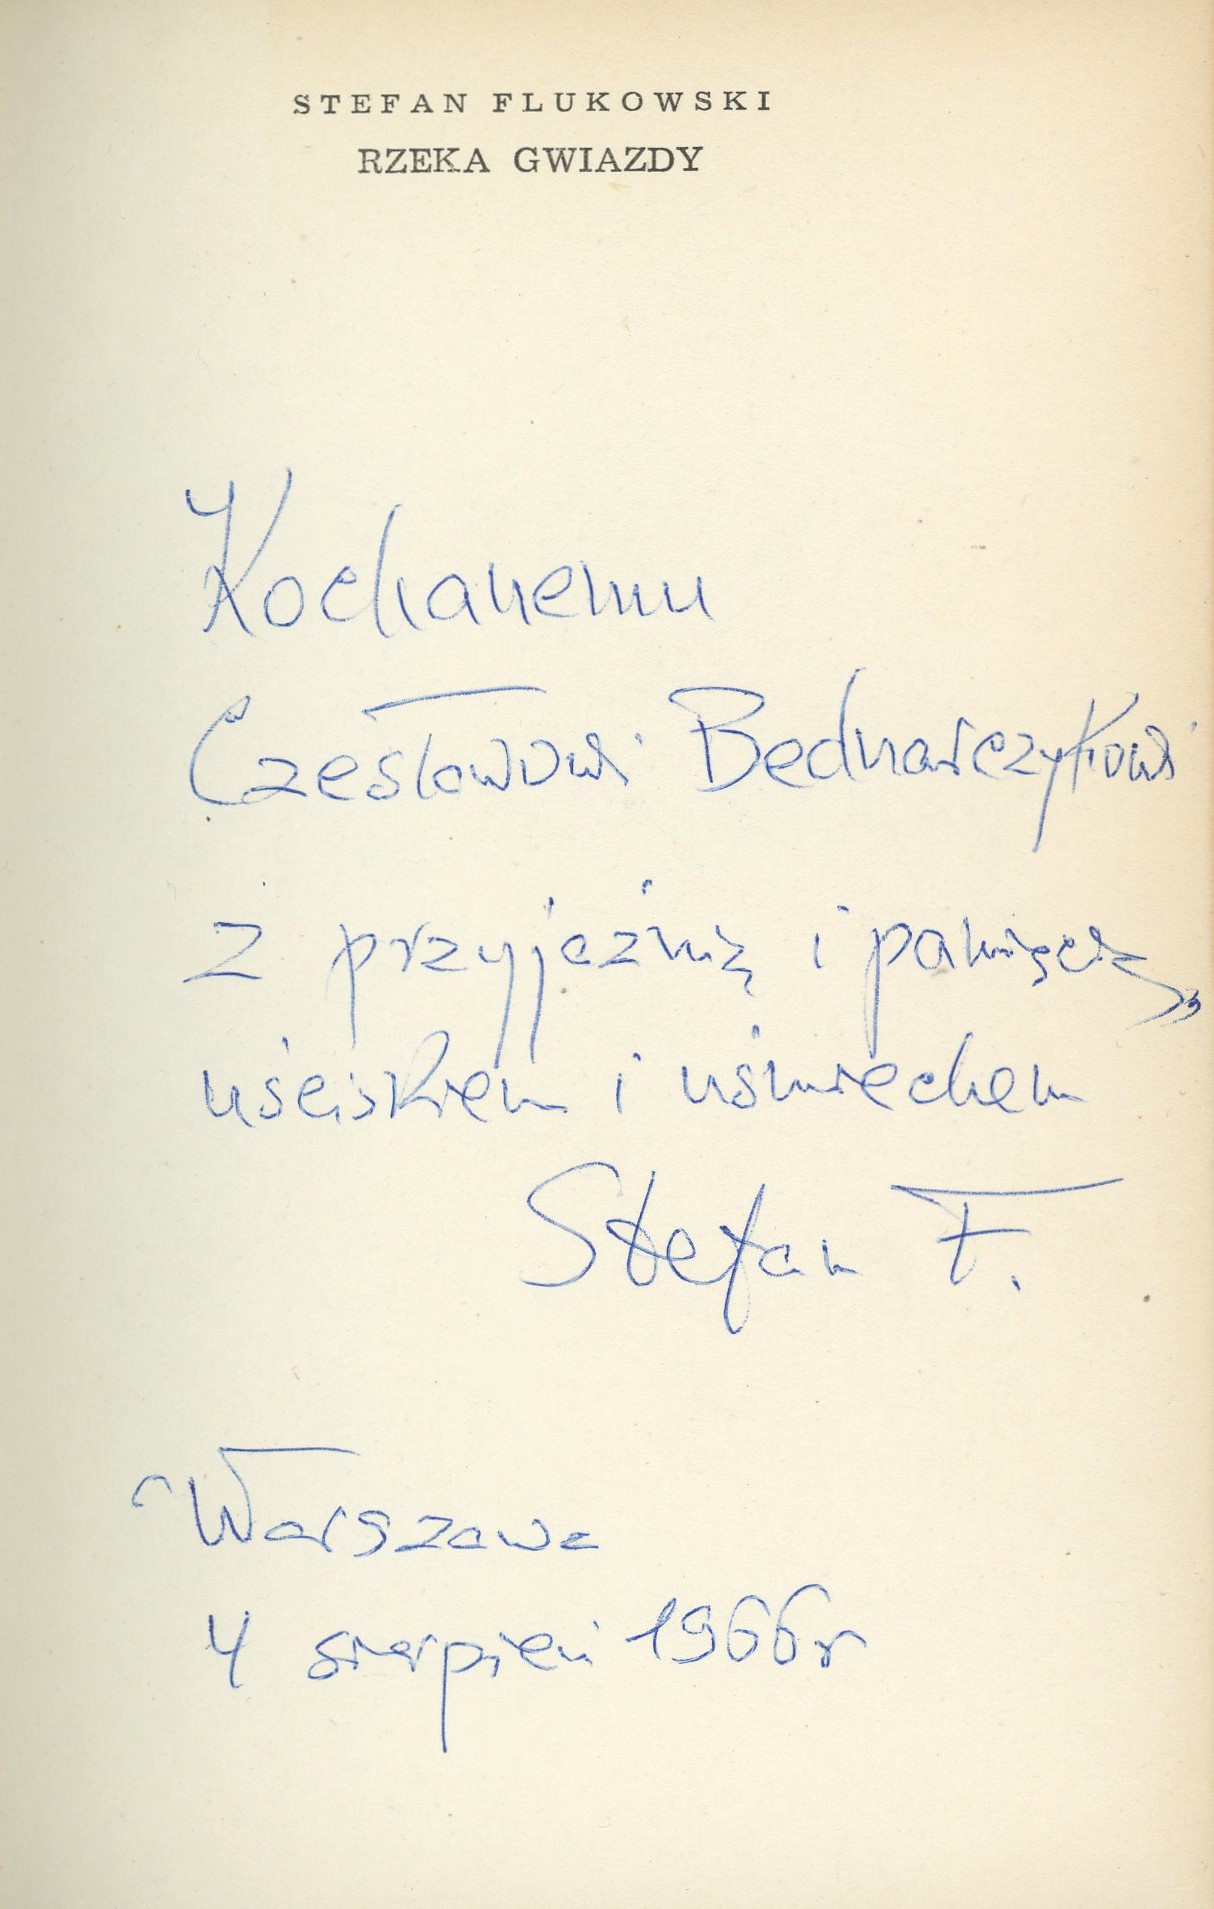 STEFAN FLUKOWSKI
RZEKA GWIAZDY
Kochanemu
Czesławowi Bednarczykowi
z przyjaźnią i pamięcią,
uściskiem i uśmiechem
Stefan F.
Warszawa
4 sierpień 1966 r